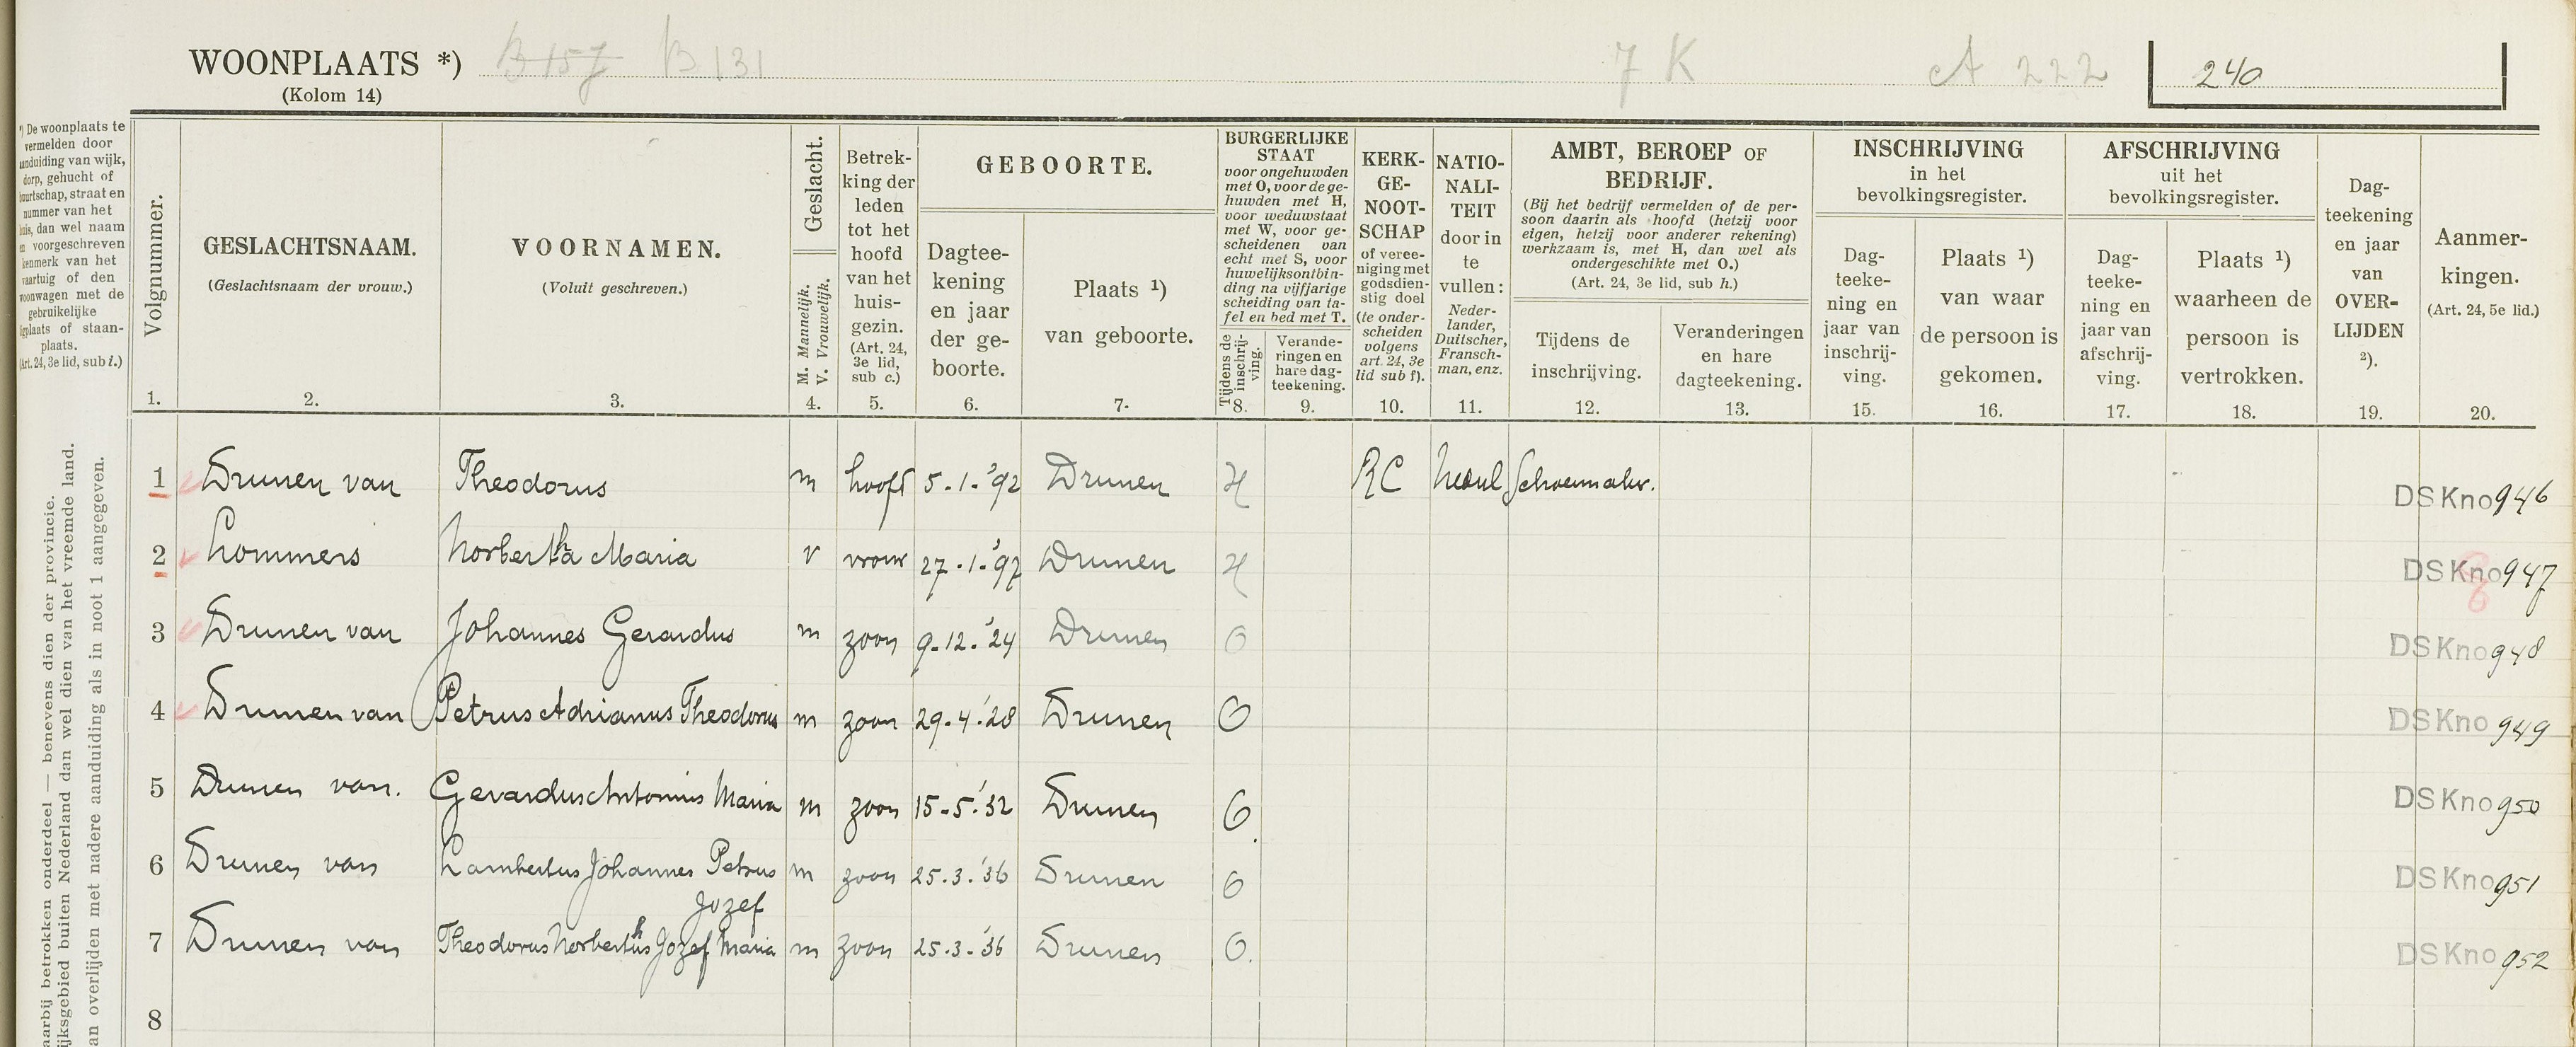 WOONPLAATS *) B 157 B 131 7 K A 222 240
(Kolom 14)
*) De woonplaats te
vermelden door
aanduiding van wijk,
dorp, gehucht of
buurtschap, straat en
nummer van het
huis, dan wel naam
en voorgeschreven
kenmerk van het
vaartuig of den
woonwagen met de
gebruikelijke
ligplaats of staan-
plaats.
(Art. 24, 3e lid, sub i.)
aarbij betrokken onderdeel — benevens dien der provincie.
ijksgebied buiten Nederland dan wel dien van het vreemde land.
an overlijden met nadere aanduiding als in noot 1 aangegeven.
Volgnummer.
1.
GESLACHTSNAAM.
(Geslachtsnaam der vrouw.)
2.
VOORNAMEN.
(Voluit geschreven.)
3.
Geslacht.
M. Mannelijk.
V. Vrouwelijk.
4.
Betrek-
king der
leden
tot het
hoofd
van het
huis-
gezin.
(Art. 24,
3e lid,
sub c.)
5.
GEBOORTE.
Dagtee-
kening
en jaar
der ge-
boorte.
6.
Plaats ¹)
van geboorte.
7.
BURGERLIJKE
STAAT
voor ongehuwden
met O, voor de ge-
huwden met H,
voor weduwstaat
met W, voor ge-
scheidenen van
echt met S, voor
huwelijksontbin-
ding na vijfjarige
scheiding van ta-
fel en bed met T.
Tijdens de
inschrij-
ving.
8.
Verande-
ringen en
hare dag-
teekening.
9.
KERK-
GE-
NOOT-
SCHAP
of veree-
niging met
godsdien-
stig doel
(te onder-
scheiden
volgens
art. 24, 3e
lid sub f).
10.
NATIO-
NALI-
TEIT
door in
te
vullen:
Neder-
lander,
Duitscher,
Fransch-
man, enz.
11.
AMBT, BEROEP OF
BEDRIJF.
(Bij het bedrijf vermelden of de per-
soon daarin als hoofd (hetzij voor
eigen, hetzij voor anderer rekening)
werkzaam is, met H, dan wel als
ondergeschikte met O.)
(Art. 24, 3e lid, sub h.)
Tijdens de
inschrijving.
12.
Veranderingen
en hare
dagteekening.
13.
INSCHRIJVING
in het
bevolkingsregister.
Dag-
teeke-
ning en
jaar van
inschrij-
ving.
15.
Plaats ¹)
van waar
de persoon is
gekomen.
16.
AFSCHRIJVING
uit het
bevolkingsregister.
Dag-
teeke-
ning en
jaar van
afschrij-
ving.
17.
Plaats ¹)
waarheen de
persoon is
vertrokken.
18.
Dag-
teekening
en jaar
van
OVER-
LIJDEN
²).
19.
Aanmer-
kingen.
(Art. 24, 5e lid.)
20.
1 Drunen van Theodorus m hooft 5.1.'92 Drunen H RC Schoenmaker. DSKno 946
2 Lommers Norbertha Maria v vrouw 27.1.'97 Drunen H DSKno 947
3 Drunen van Johannes Gerardus m zoon 9.12.'24 Drunen O DSKno 948
4 Drunen van Petrus Adrianus Theodorus m zoon 29.4.'28 Drunen O DSKno 949
5 Drunen van. Gerardus Antonius Maria m zoon 15.5.'32 Drunen O. DSKno 950
6 Drunen van Lambertus Johannes Petrus m zoon 25.3.'36 Drunen O DSKno 951
Jozef
7 Drunen van Theodorus Norberthus Jozef Maria m zoon 25.3.'36 Drunen O. DSKno 952
8